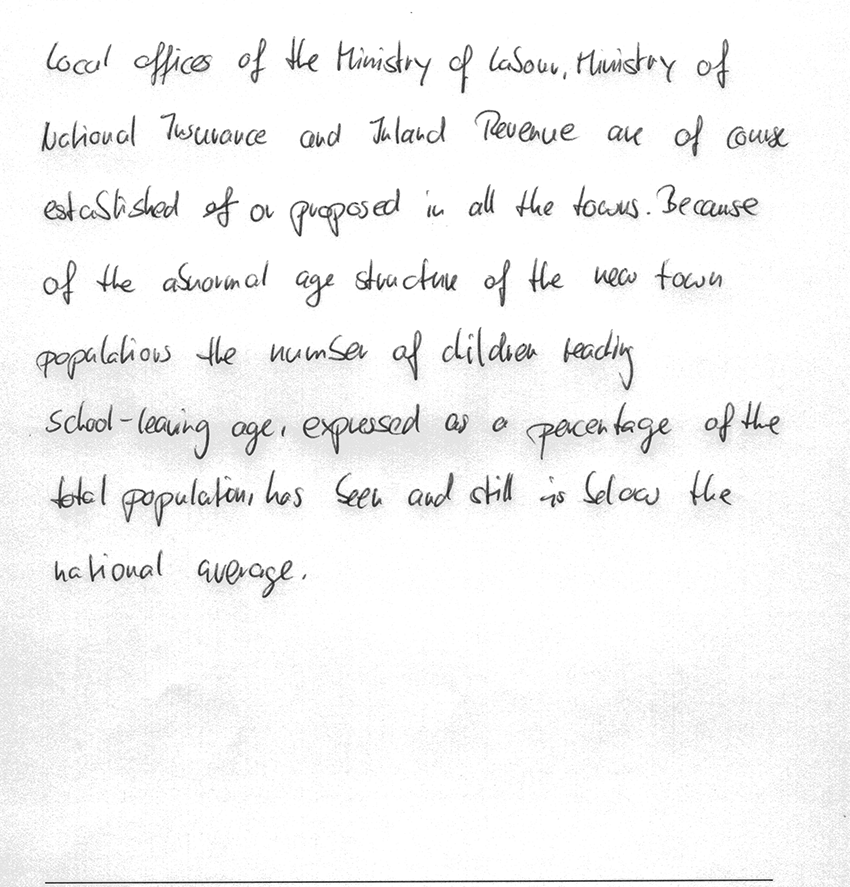 Local offices of the Ministry of Labour, Ministry of
National Insurance and Inland Revenue are of course
established of or proposed in all the towns. Because
of the abnormal age structure of the new town
populations the number of children reading
school-leaving age, expressed as a percentage of the
total population, has been and still is below the
national average.